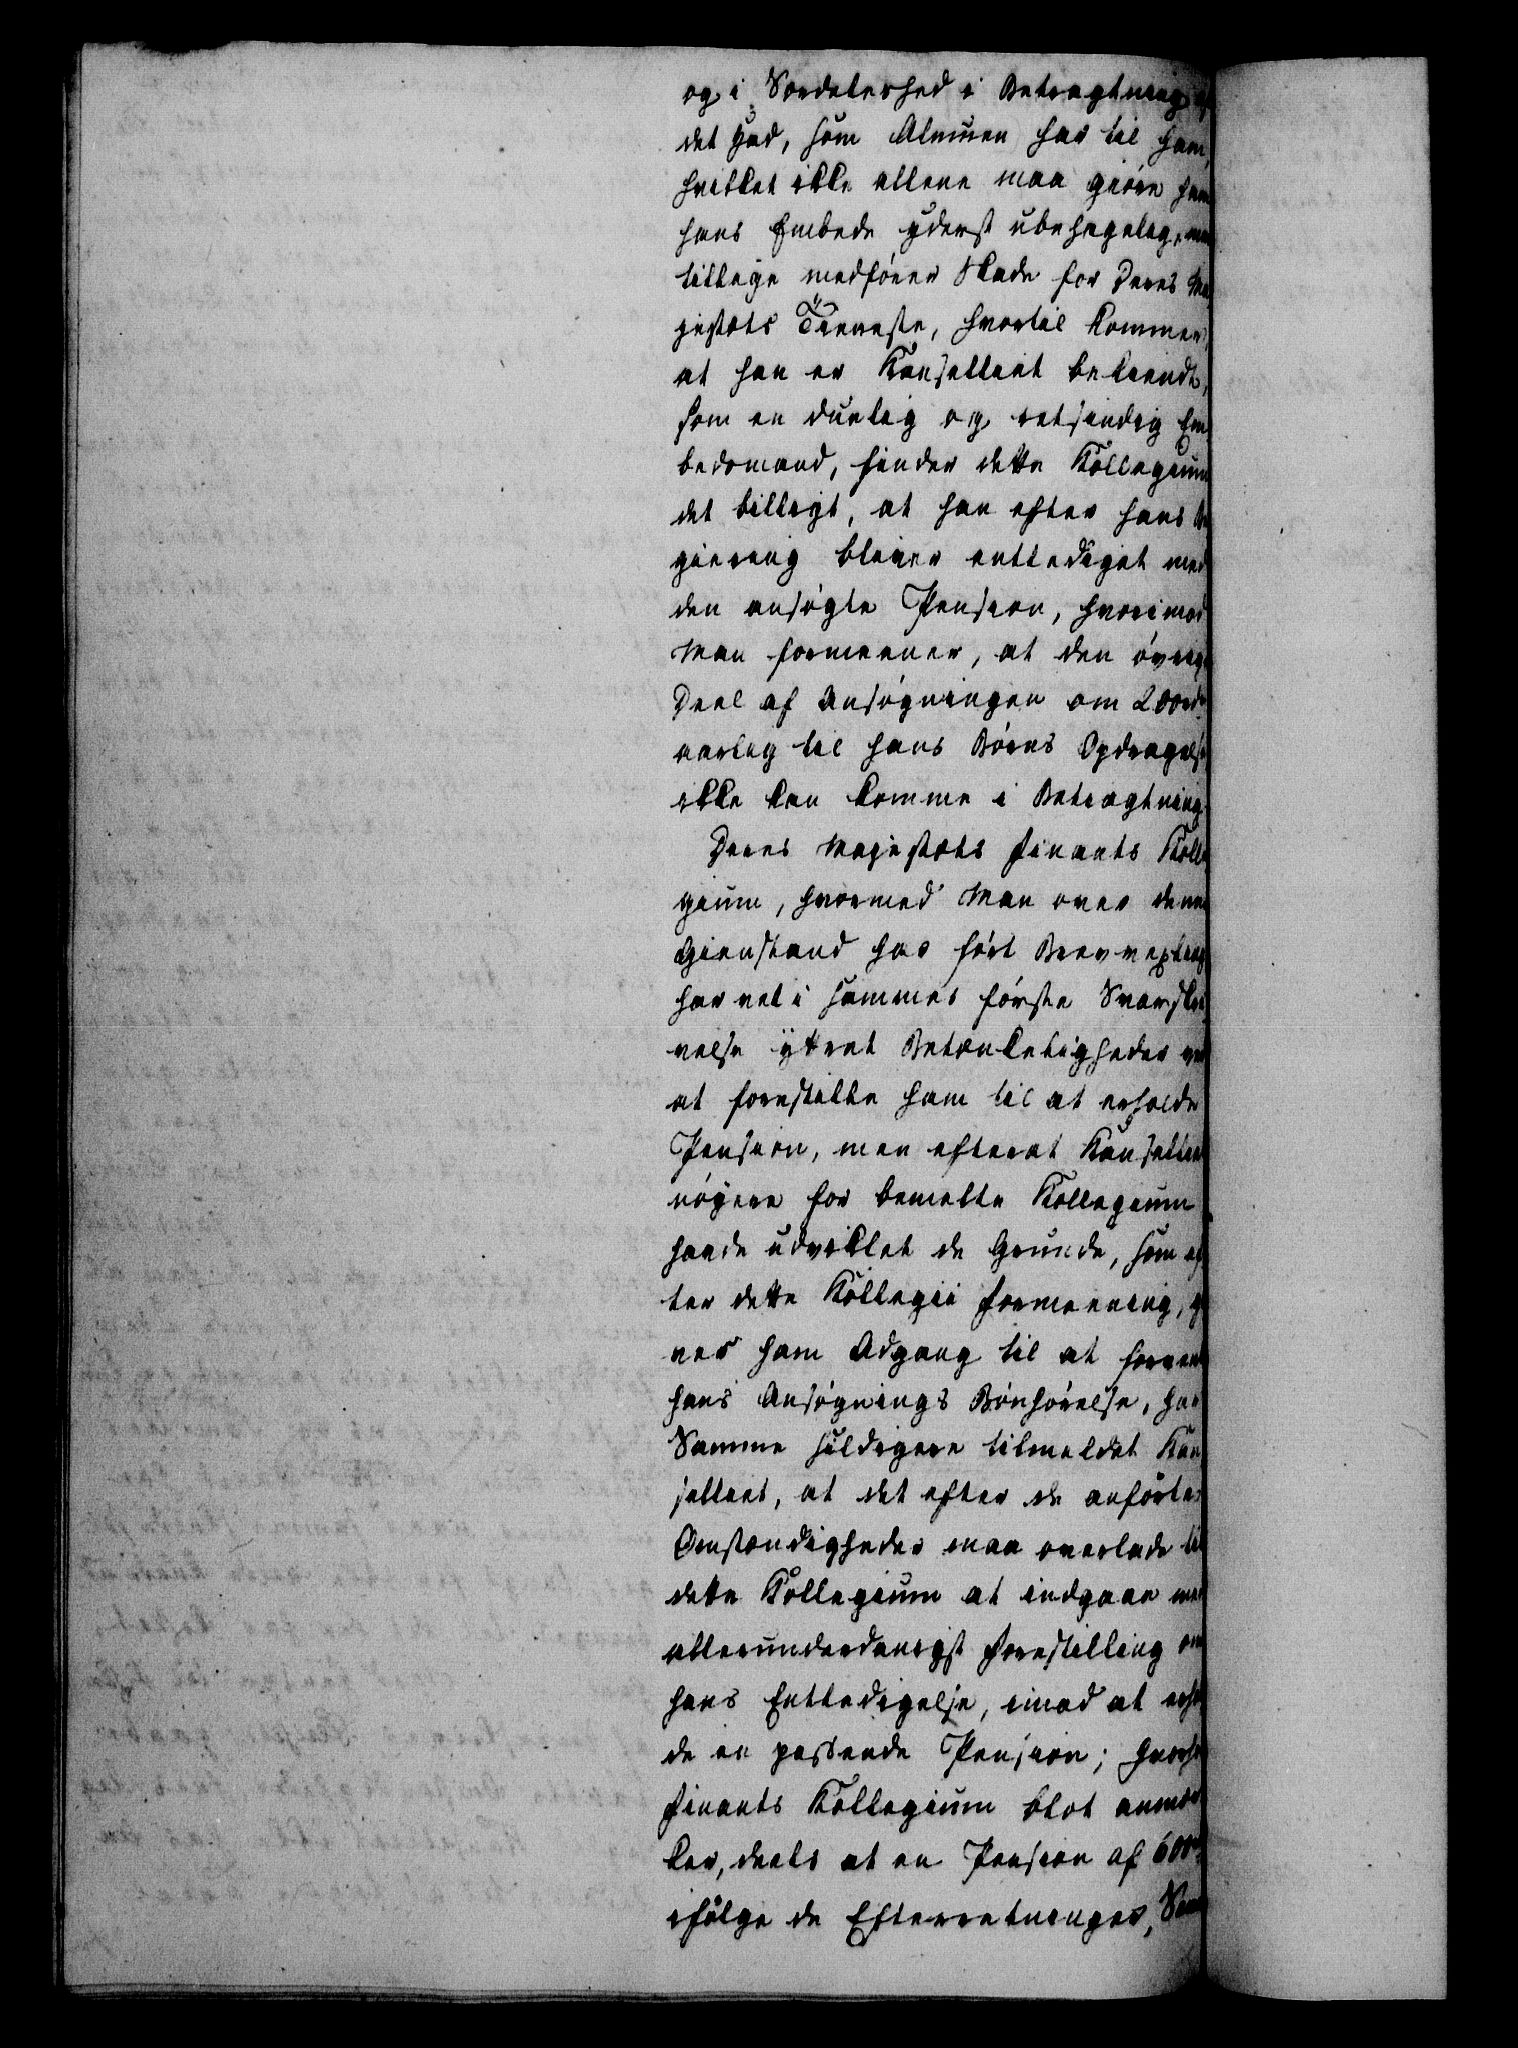 og i Særdeleshed i Betragtning af
det Had, som Almuen har til ham,
hvilket ikke allene maa giöre ham
hans Embede yderst ubehagelig, men
tillige medförer Skade for Deres Ma
jestæts Tieneste, hvortil kommer,
at han er Kanselliet bekiendt,
som en duelig og retsindig Em
bedsmand, finder dette Kollegium
det billigt, at han efter hans Be
giering bliver entlediget med
den ansögte Pension, hvorimod
Man formeener, at den övrige
Deel af Ansögningen om 200rd
aarlig til hans Börns Opdragelse
ikke kan komme i Betragtning.
Deres Majestæts Finants Kolle
gium, hvormed Man over denne
Gienstand har fört Brevvexling
har vel i sammes förste Svarskri
velse yttret Betænkeligheder ved
at forestille ham til at erholde
Pension, men efterat Kanselliet
nöyere for bemelte Kollegium
havde udviklet de Grunde, som ef
ter dette Kollegii Formeening, gi
ver ham Adgang til at forvente
hans Ansögnings Bönhörelse, har
Samme sildigere tilmeldet Kan
selliet, at det efter de anförte
Omstændigheder maa overlade til
dette Kollegium at indgaae med
allerunderdanigst Forestilling om
hans Entledigelse, imod at erhol
de en passende Pension; hvorhos
Finants Kollegium blot anmær
ker, deels at en Pension af 600rd
ifölge de Efterretninger, Sam